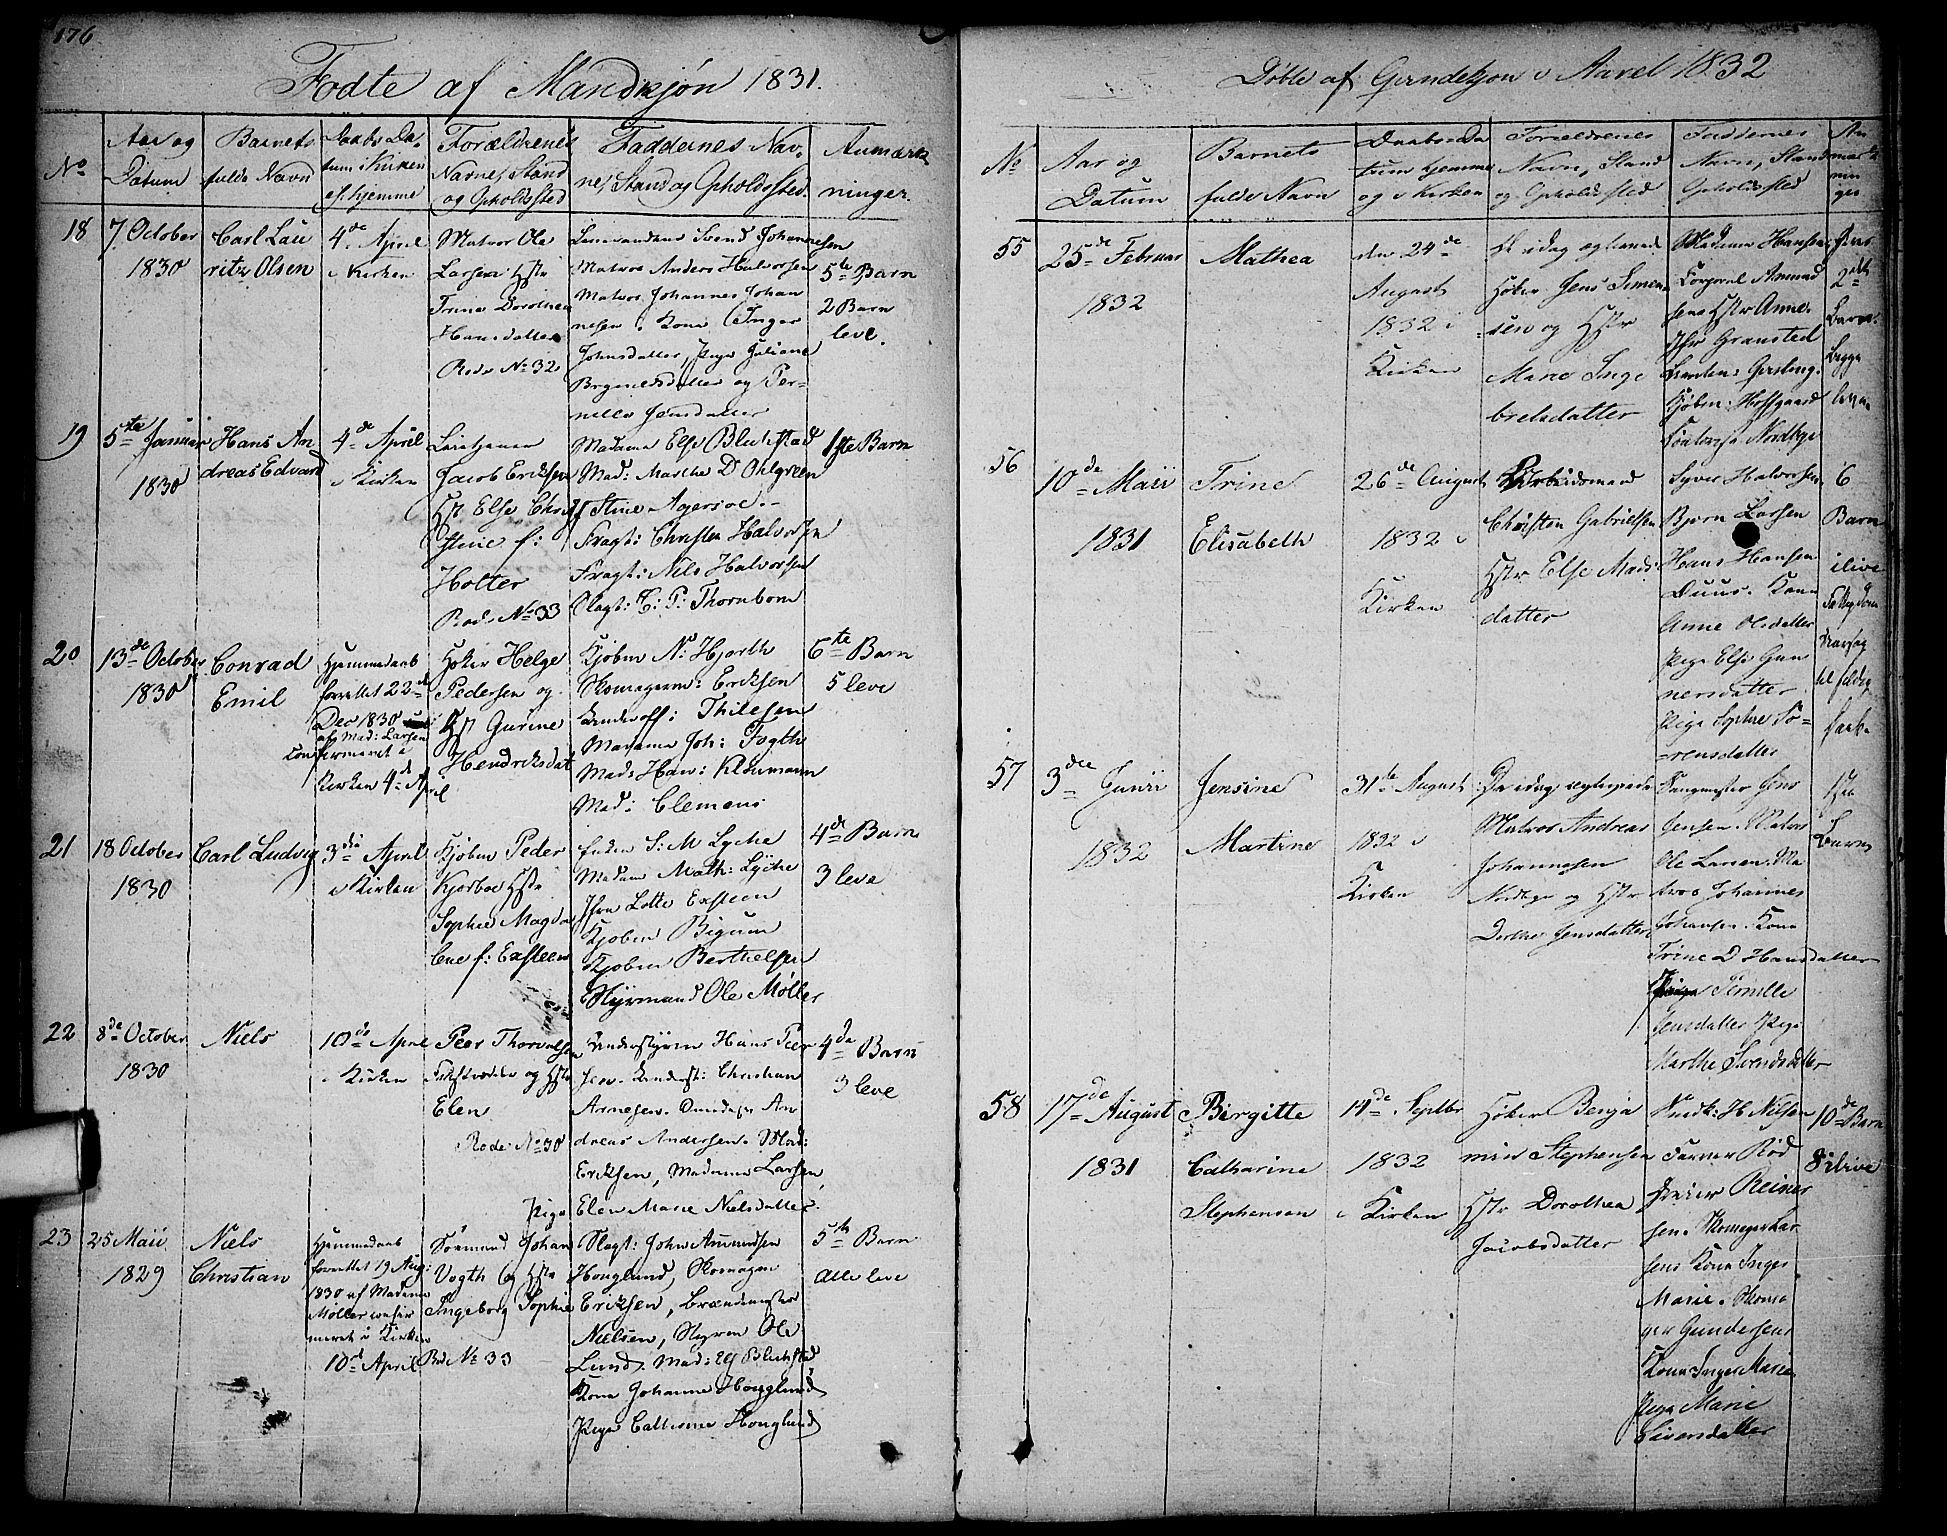 176
Fødte af Mandkjøn 1831.
No
Aar og
Datum
Barnets
fulde Navn
Daabs Da-
tum i Kirken
el. hjemme
Forældrenes
Navne, Stand
og Opholdssted
Faddernes Nav-
ne, Stand og Opholdssted.
Anmærk
ninger.
18
7 October
1830
Carl Lau
ritz Olsen
4de April
i Kirken
Matros Ole
Larsen Hstr
Trine Dorothea
Hansdatter
Rode No 32
Svend Johannesen
Matros Anders Halvorsen
Matros Johannes Johan
nesen. Kone Inger
Johnsdatter, Pige Juliane
Brynildsdatter og Per-
nille Jensdatter
5te Barn
2 Barn
leve.
19
5te Januar
1830
Hans An
dreas Edvard
4de April
i Kirken
Jacob Eriksen
Hst Else Chri
stine f:
Holter
Rode No 33
Madame Else Blichfeldt
Mad: Marthe D Ohlgreen
Jf Stine Agersøe.
Fragt: Christen Halvorsen
Fragt: Nils Halvorsen
Slagt: C: P: Thornbom
1ste Barn
20
13de October
1830
Conrad
Emil
Hjemmedaab
forrettet 22de
Dec 1830
af Mad: Larsen
Confirmeret i
Kirken 4de April
Høker Helge
Pedersen og
Hst Gurine
Hendriksdat
Kjøbm N: Hjorth
Skomagerm: Eriksen
Underoff: Thilesen
Madame Joh: Fogth
Mad: Han: Klowmann
Mad: Clemens
6te Barn
5 leve
21
18 October
1830
Carl Ludvig
3die April
i Kirken
Kjøbm Peder
Kjørboe Hstr
Sophie Magda
lene f: Exsteen
S: M Lyche
Madam Math: Lyche
Jfru Lotte Exsteen
Kjøbm Bigum
Kjøbm Berthelsen
Styrmand Ole Møller
4de Barn
3 leve
22
8de October
1830
Niels
10de April
i Kirken
Peer Thorvalsen
og Hstr
Elen
Rode No 30
Understyrm Hans Peer
sen. Underst: Christian
Arnesen. An
dreas Andersen. Mad:
Eriksen, Madame Larsen,
Pige Elen Marie Nielsdatter.
4de Barn
3 leve
23
25 Maii
1829
Niels
Christian
Hjemmedaab
forrettet 19 Aug:
1830 af Madame
Møller confir
meret i Kirken
10de April
Sømand Johan
Vogth og Hstr
Ingeborg Sophie
Rod No 33
Slagt: John Amundsen
Houglund, Skomager
Eriksen, Brandmester
Nielsen, Styrm Ole
Lund. Mad: Els Blichfeld
Kone Johanne Houglund
Pige Cathrine Houglund
5te Barn
alle leve
Døbte af Qvindekjøn i Aaret 1832
No
Aar og
Datum
Barnets
fulde Navn
Daabs Da
tum hjemme
og i Kirken
Forældrenes
Navn, Stand
og Opholdssted
Faddernes
Navn, Stand
Opholdsted
An
mærk
nin
ger
55
25de Februar
1832
Mathea
den 24de
August
1832 i
Kirken
Høker Jens Simen
sen og Hstr
Marie Inge
bretsdatter
Madame Hansen
Corporal Amund
sens Hstr Anne.
Jfr Gransted
Kjøbm: Hoffgaard
Nordbye
2det
Barn
Begge
leve
56
10de Maii
1831
Trine
Elisabeth
26de August
1832 i
Kirken
Arbeidsmand
Christen Gabrielsen
Hstr Else Mads
datter
Syver Halvorsen
Bjørn Larsen
Hans Hansen
Duus. Kone
Anne Olsdatter
Pige Else Gun
nersdatter
Pige Sophie Sø-
rensdatter
6
Barn
ilive
57
3die Junii
1832
Jensine
Martine
31te August
1832 i
Kirken
Matros Andreas
Johannesen
og Hstr
Dorthe Jensdatter
Tangmester Jens
Jensen. Matros
Ole Larsen. Ma
tros Johannes
Johansen. Kone
Trine D Hansdatter
Pernille
Jensdatter Pige
Marthe Svendsdatter
1ste
Barn
58
17de August
1831
Birgitte
Catharine
Stephensen
14de Septbr
1832
i Kirken
Høker Benja
min Stephensen
Hstr Dorothea
Jacobsdatter
H. Nilsen
Farver Rød
Reiner
sen. Skomager Lar
sens Kone Inger
Marie. Skoma
ger Gundersens
Kone Inger Marie
Pige Marie
Siversdatter
10de Barn
8 ilive